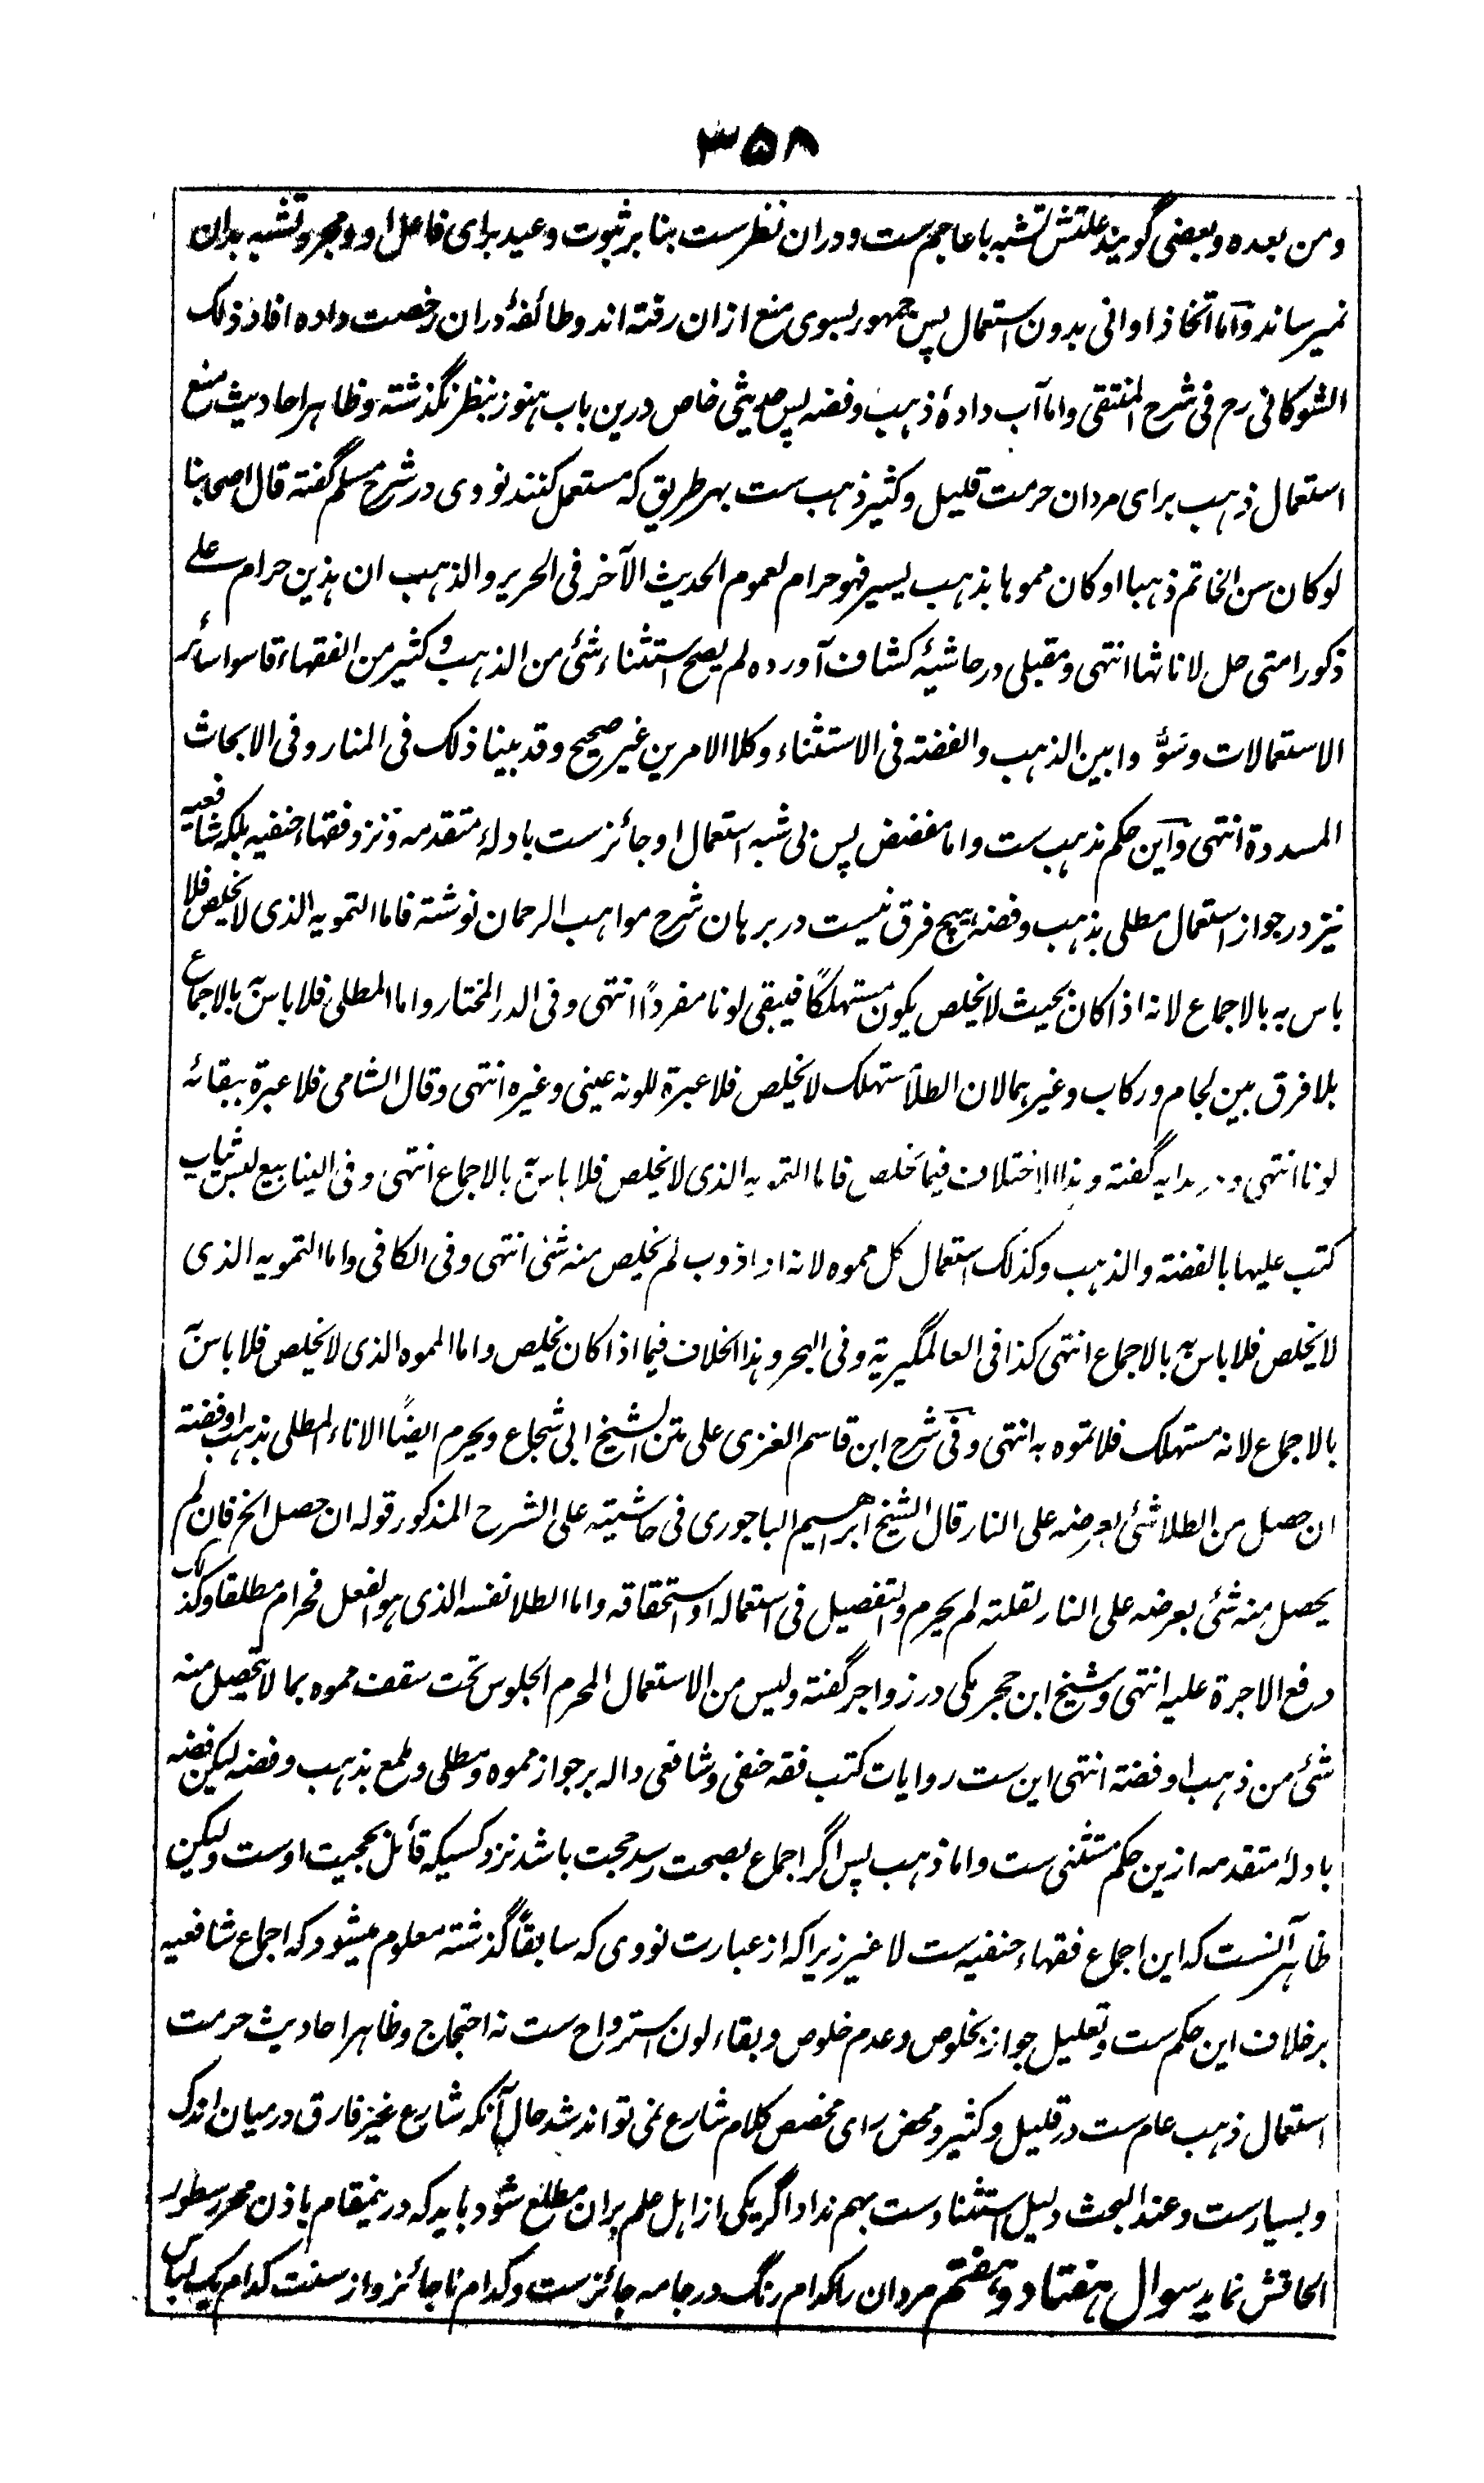 ۳۵۸
ومن بعده و بعضی گویند علتش تشبه باعاجم ست و دران نظرست بنا بر ثبوت وعید برای فاعل او و مجرد تشبه بدان
نمیرساند و اما اتخاذ اوانی بدون استعمال پس جمهور بسوی منع ازان رفته اند و طائفهٔ دران رخصت داده افاد ذلک
الشوکانی رح فی شرح المنتقی و اما آب دادهٔ ذهب و فضه پس حدیثی خاص درین باب هنوز بنظر نگذشته و ظاهر احادیث منع
استعمال ذهب برای مردان حرمت قلیل و کثیر ذهب ست بهر طریق که مستعمل کنند نووی در شرح مسلم گفته قال اصحابنا
لو کان سن الخاتم ذهبا او کان مموها بذهب یسیر فهو حرام لعموم الحدیث الآخر فی الحریر والذهب ان هذین حرام علے
ذکور امتی حل لاناثها انتهی و مقبلی در حاشیهٔ کشاف آورده لم یصح استثناء شئ من الذهب و کثیر من الفقهاء قاسوا سائر
الاستعمالات و سوَّوا بین الذهب والفضة فی الاستثناء و کلا الامرین غیر صحیح و قد بینا ذلک فی المنار و فی الابحاث
المسددة انتهی و این حکم مذهب ست و اما مفضض پس بی شبه استعمال او جائزست بادلهٔ متقدمه و نزد فقهاء حنفیه بلکه شافعیه
نیز در جواز استعمال مطلی بذهب و فضه هیچ فرق نیست در برهان شرح مواهب الرحمان نوشته فاما التمویه الذی لا یخلص فلا
باس به بالاجماع لانه اذا کان بحیث لا یخلص یکون مستهلکاً فیبقی لونا مفرداً انتهی و فی الدر المختار و اما المطلی فلا باس به بالاجماع
بلا فرق بین لجام و رکاب و غیرهما لان الطلأ مستهلک لا یخلص فلا عبرة للونه عینی و غیره انتهی و قال الشامی فلا عبرة ببقائه
لونا انتهی و در هدایه گفته و هذا الاختلاف فیما یخلص فاما التمویه الذی لا یخلص فلا باس به بالاجماع انتهی و فی الینابیع لبس ثیاب
کتب علیها بالفضة والذهب و کذلک استعمال کل مموه لانه اذا ذوب لم یخلص منه شئ انتهی و فی الکافی و اما التمویه الذی
لا یخلص فلا باس به بالاجماع انتهی کذا فی العالمگیریة و فی البحر و هذا الخلاف فیما اذا کان یخلص و اما المموه الذی لا یخلص فلا باس به
بالاجماع لانه مستهلک فلا تموه به انتهی و فی شرح ابن قاسم الغزی علی متن الشیخ ابی شجاع و یحرم ایضاً الاناء المطلی بذهب او فضة
ان حصل من الطلا شئ بعرضه علی النار قال الشیخ ابراهیم الباجوری فی حاشیته علی الشرح المذکور قوله ان حصل الخ فان لم
یحصل منه شئ بعرضه علی النار لقلته لم یحرم و التفصیل فی استعماله او استحقاقه و اما الطلا نفسه الذی هو الفعل فحرام مطلقا و کذلک
دفع الاجرة علیه انتهی و شیخ ابن حجر مکی در زواجر گفته و لیس من الاستعمال المحرم الجلوس تحت سقف مموه بما لا یتحصل منه
شئ من ذهب او فضة انتهی این ست روایات کتب فقه حنفی و شافعی داله بر جواز مموه و مطلی و ملمع بذهب و فضه لیکن فضه
بادلهٔ متقدمه ازین حکم مستثنی ست و اما ذهب پس اگر اجماع بصحت رسد حجت باشد نزد کسیکه قائل بحجیت اوست ولیکن
ظاهر آنست که این اجماع فقهاء حنفیه ست لا غیر زیراکه از عبارت نووی که سابقاً گذشته معلوم میشود که اجماع شافعیه
بر خلاف این حکم ست و تعلیل جواز بخلوص و عدم خلوص و بقاء لون استرواح ست نه احتجاج و ظاهر احادیث حرمت
استعمال ذهب عام ست در قلیل و کثیر و محض رای مخصص کلام شارع نمی تواند شد حال آنکه شارع غیر فارق درمیان اندک
و بسیارست و عند البحث دلیل استثنا دست بهم نداد اگر یکی از اهل علم بران مطلع شود باید که درینمقام باذن محرر سطور
الحاقش نماید سوال هفتاد و هفتم مردان را کدام رنگ در جامه جائزست و کدام ناجائز و از سنت کدام یک لباس